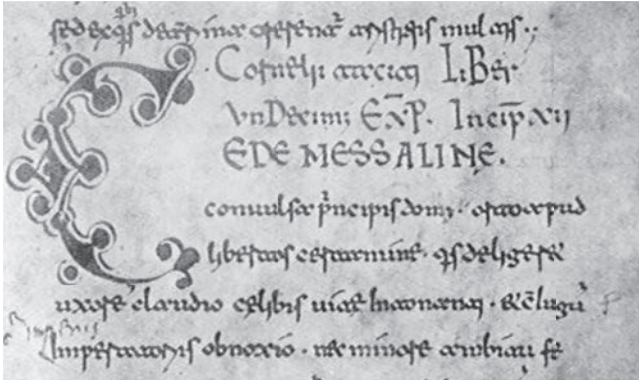 sed ex q̄s deterrima orerent̃ tristitiis multis.
Cornelii taciti LiBer
VnDecimus EXP̄. Incip̄ xii
CEDE MESSALINE.
conuulsa principis domus. orto apud
libertos certamine. q̄s deligeret
uxorē claudio celibis uitae intoleranti. & cōiugū
Imperitantis obnoxio. nec minore ambitu fe